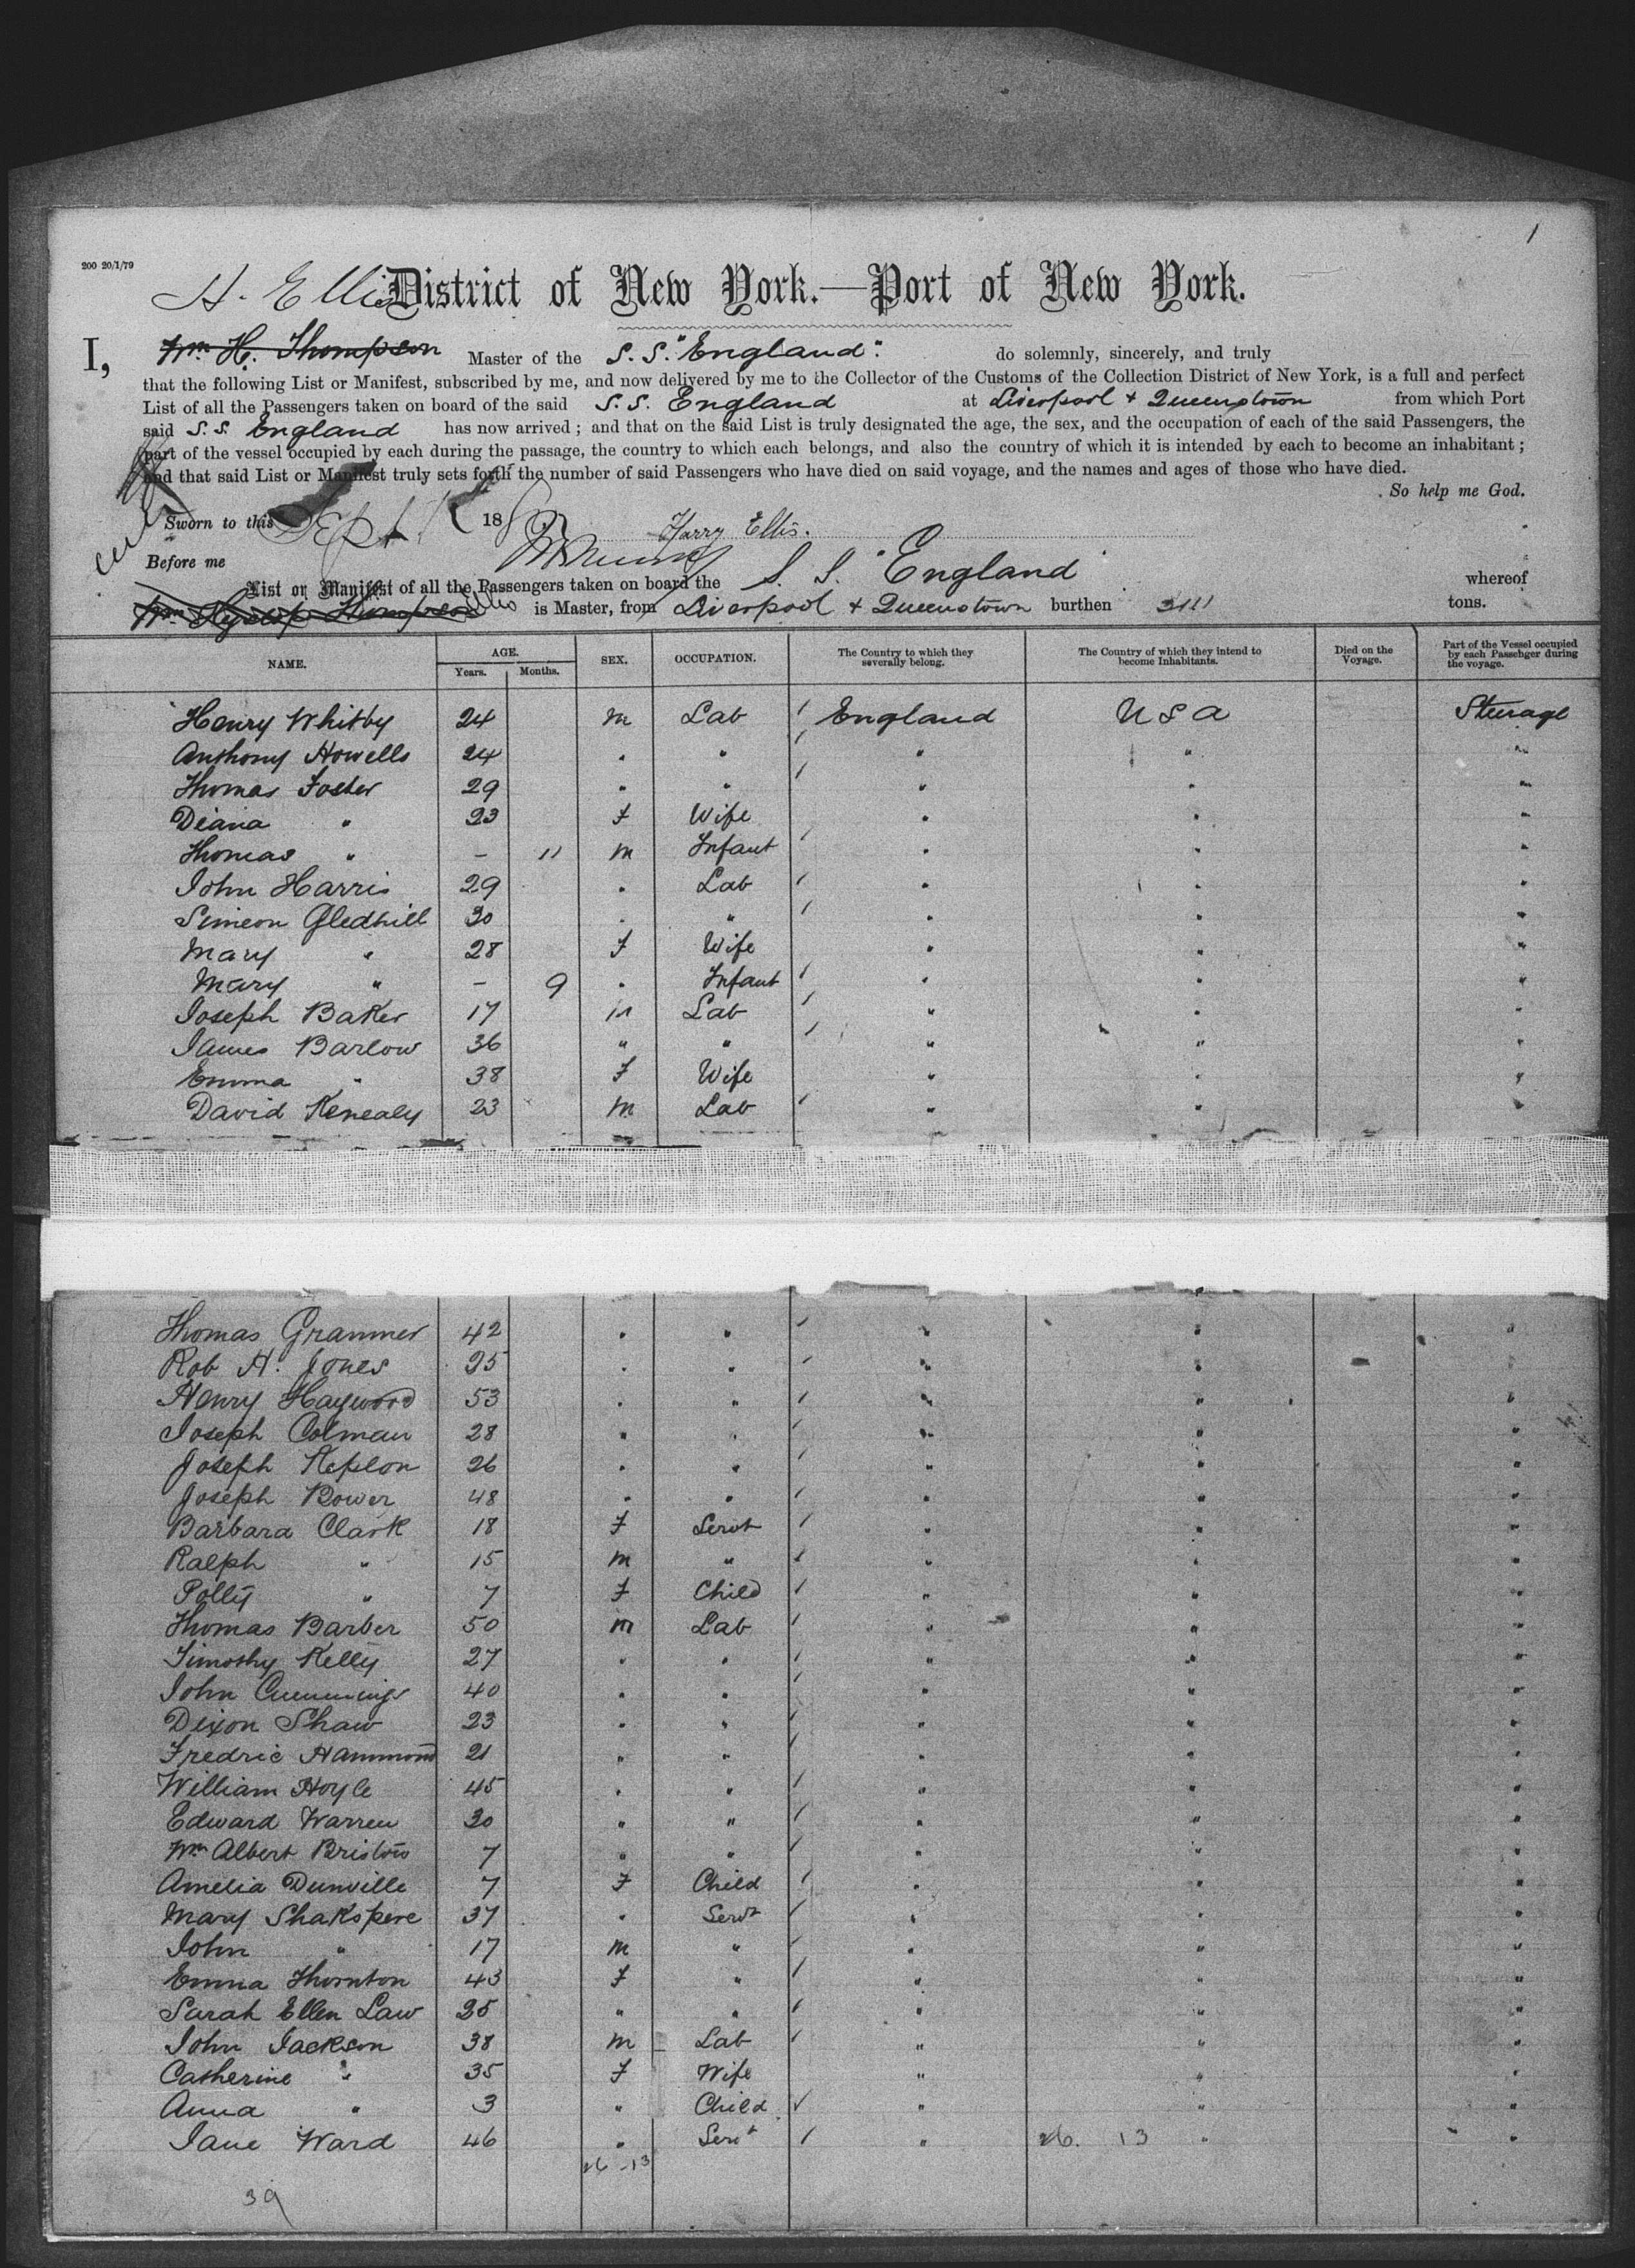 1
200 20/1/79
H. Ellis District of New York.—Port of New York.
I, Wm H. Thompson Master of the S. S. "England" do solemnly, sincerely, and truly
that the following List or Manifest, subscribed by me, and now delivered by me to the Collector of the Customs of the Collection District of New York, is a full and perfect
List of all the Passengers taken on board of the said S. S. England at Liverpool + Queenstown from which Port
said S. S. England has now arrived ; and that on the said List is truly designated the age, the sex, and the occupation of each of the said Passengers, the
part of the vessel occupied by each during the passage, the country to which each belongs, and also the country of which it is intended by each to become an inhabitant ;
and that said List or Manifest truly sets forth the number of said Passengers who have died on said voyage, and the names and ages of those who have died.
So help me God.
Sworn to this Sept 18
Harry Ellis.
Before me
List or Manifest of all the Passengers taken on board the S. S. "England" whereof
Ellis is Master, from Liverpool + Queenstown burthen tons.
NAME. AGE. Years. Months. SEX. OCCUPATION. The Country to which they severally belong. The Country of which they intend to become Inhabitants. Died on the Voyage. Part of the Vessel occupied by each Passenger during the voyage.
Henry Whitby 24 m Lab / England U S A Steerage
Anthony Howells 24 " " / " " "
Thomas Foster 29 " " / " " "
Diana " 23 F Wife " " "
Thomas " – 11 m Infant / " " "
John Harris 29 " Lab / " " "
Simeon Gledhill 30 " " / " " "
Mary " 28 F Wife " " "
Mary " – 9 " Infant / " " "
Joseph Baker 17 m Lab / " " "
James Barlow 36 " " / " " "
Emma " 38 F Wife " " "
David Kenealy 23 m Lab / " " "
Thomas Grammer 42 " " / " " "
Rob H. Jones 25 " " / " " "
Henry Haywood 53 " " / " " "
Joseph Colman 28 " " / " " "
Joseph Keplon 26 " " / " " "
Joseph Bower 48 " " / " " "
Barbara Clark 18 F Servt / " " "
Ralph " 15 m " / " " "
Polly " 7 F Child / " " "
Thomas Barber 50 m Lab / " " "
Timothy Kelly 27 " " / " " "
John Cummings 40 " " / " " "
Dixon Shaw 23 " " / " " "
Fredric Hammond 21 " " / " " "
William Hoyle 45 " " / " " "
Edward Warren 30 " " / " " "
Wm Albert Bristow 7 " " / " " "
Amelia Dunville 7 F Child / " " "
Mary Shakspere 37 " Servt / " " "
John " 17 m " / " " "
Emma Thornton 43 F " / " " "
Sarah Ellen Law 25 " " / " " "
John Jackson 38 m Lab / " " "
Catherine " 35 F Wife " " "
Anna " 3 " Child / " " "
Jane Ward 46 " Servt / " 26. 13 " "
26 - 13
39